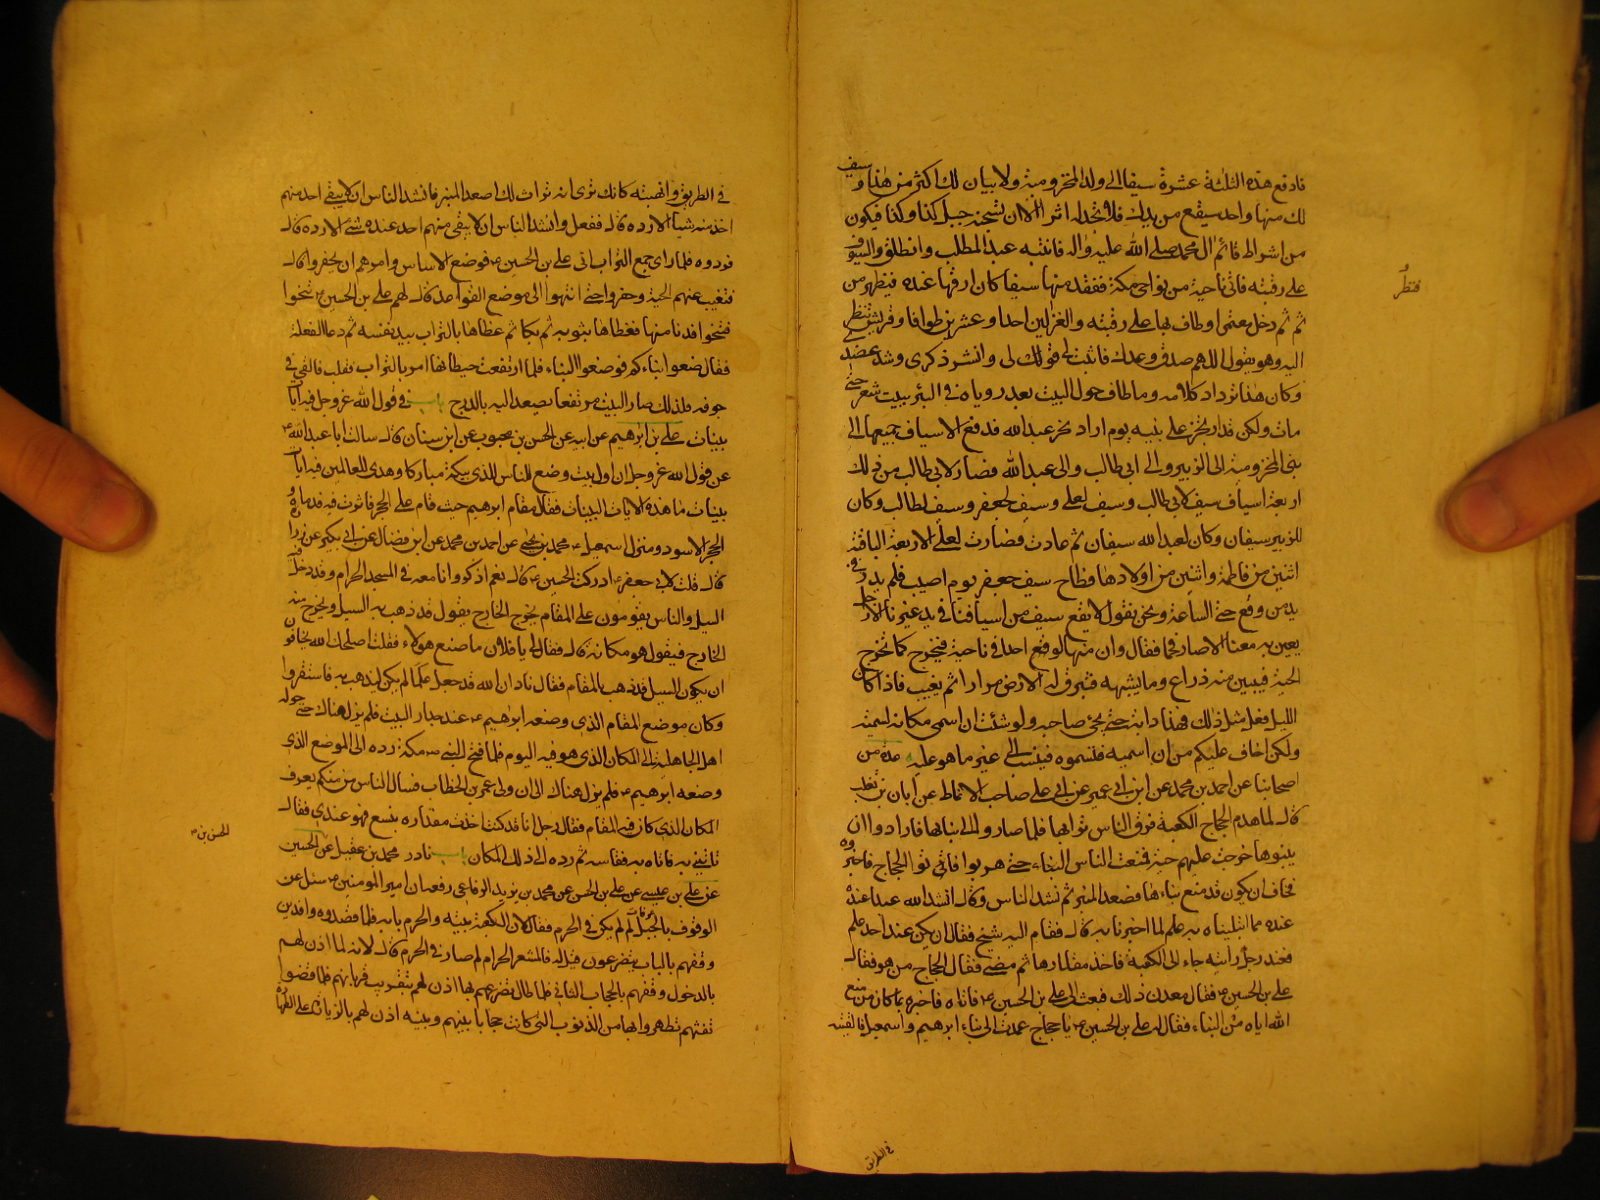 فادفع هذه الثلثة عشرة سيفا الى ولد المخزومية ولا يبان لك اكثر من هذا وسيف
لك منها واحد سيقع من يدك فلا تجد له اثرا الا ان يستجنه جبل كذا وكذا فيكون
من اشراط قائم ال محمد صلى الله عليه واله فانتبه عبد المطلب وانطلق والسيوف
على رقبته فاتى ناحية من نواحى مكة ففقد منها سيفا كان ارقها عنده فيظهر من
ثم ثم دخل معتمرا وطاف بها على رقبته والغزالين احدا وعشرين طوافا وقريش تنظر
اليه وهو يقول اللهم صدق وعدك فاثبت لى قولى وانشر ذكرى وشد عضدى
وكان هذا ترداد كلامه وما طاف حول البيت بعد رؤياه فى البئر ببيت شعر حتى
مات ولكن قد ارتجز على بنيه يوم اراد نحر عبد الله فدفع الاسياف جميعها الى
بنى المخزومية الى الزبير والى ابى طالب والى عبد الله فصار لابى طالب من ذلك
اربعة اسياف سيف لابى طالب وسيف لعلى وسيف لجعفر وسيف لطالب وكان
للزبير سيفان وكان لعبد الله سيفان ثم عادت فصارت لعلى الاربعة الباقية
اثنين من فاطمة واثنين من اولادها فطاح سيف جعفر يوم اصيب فلم يدر فى
يد من وقع حتى الساعة ونحن نقول لا يقع سيف من اسيافنا فى يد غيرنا الا رجل
يعين به معنا الا صار فحما فقال وان منها لواقع احدا فى ناحية فيخرج كما تخرج
الحية فيبين منه ذراع وما يشبهه فتبرق له الارض مرارا ثم يغيب فاذا كان
الليل فعل مثل ذلك فهذا دابه حتى يجئ صاحبه ولو شئت ان اسمى مكانه لسميته
ولكن اخاف عليكم من ان اسميه فتسموه فينسب الى غير ما هو عليه عدة من
اصحابنا عن احمد بن محمد عن ابن ابى عمير عن ابى على صاحب الانماط عن ابان بن تغلب
قال لما هدم الحجاج الكعبة فرق الناس ترابها فلما صاروا الى بنائها فارادوا ان
يبنوها خرجت عليهم حية فمنعت الناس البناء حتى هربوا فاتوا الحجاج فاخبروه
فخاف ان يكون قد منع بناءها فصعد المنبر ثم نشد الناس وقال انشد الله عبدا عنده
عنده مما ابتلينا به علم لما اخبرنا به قال فقام اليه شيخ فقال ان يكن عند احد علم
فعند رجل رايته جاء الى الكعبة فاخذ مقدارها ثم مضى فقال الحجاج من هو فقال
على بن الحسين ع فقال معدن ذلك فبعث الى على بن الحسين ع فاتاه فاخبره ما كان من منع
الله اياه من البناء فقال له على بن الحسين ع يا حجاج عمدت الى بناء ابرهيم واسمعيل فالقيته
فى الطريق
فى الطريق وانهبته كانك ترى انه تراث لك اصعد المنبر فانشد الناس ان لا يبقى احد منهم
اخذ منه شيئا الا رده قال ففعل وانشد الناس ان لا يبقى منهم احد عنده شئ الا رده قال
فردوه فلما راى جمع التراب اتى على بن الحسين ع فوضع الاساس وامرهم ان يحفروا قال
فتغيبت عنهم الحية وحفروا حتى انتهوا الى موضع القواعد قال لهم على بن الحسين ع تنحوا
فتنحوا فدنا منها فغطاها بثوبه ثم بكا ثم غطاها بالتراب بيد نفسه ثم دعا الفعلة
فقال ضعوا بناءكم فوضعوا البناء فلما ارتفعت حيطانها امر بالتراب فقلب فالقى فى
جوفه فلذلك صار البيت مرتفعا يصعد اليه بالدرج باب فى قول الله عز وجل فيه ايات
بينات على بن ابرهيم عن ابيه عن الحسن بن محبوب عن ابن سنان قال سالت ابا عبد الله ع
عن قول الله عز وجل ان اول بيت وضع للناس للذى ببكة مباركا وهدى للعالمين فيه ايات
بينات ما هذه الايات البينات فقال مقام ابرهيم حيث قام على الحجر فاثرت فيه قدماه و
الحجر الاسود ومنزل اسمعيل ع محمد بن يحيى عن احمد بن محمد عن ابن فضال عن ابن بكير عن زرارة
قال قلت لابى جعفر ع ادركت الحسين ع قال نعم اذكر وانا معه فى المسجد الحرام وقد دخل فيه
السيل والناس يقومون على المقام يخرج الخارج يقول قد ذهب به السيل ويخرج منه
الخارج فيقول هو مكانه قال فقال لى يا فلان ما صنع هؤلاء فقلت اصلحك الله يخافون
ان يكون السيل قد ذهب بالمقام فقال ناد ان الله قد جعله علما لم يكن ليذهب به فاستقروا
وكان موضع المقام الذى وضعه ابرهيم ع عند جدار البيت فلم يزل هناك حتى حوله
اهل الجاهلية الى المكان الذى هو فيه اليوم فلما فتح النبى ص مكة رده الى الموضع الذى
وضعه ابرهيم ع فلم يزل هناك الى ان ولى عمر بن الخطاب فسال الناس من منكم يعرف
المكان الذى كان فيه المقام فقال رجل انا قد كنت اخذت مقداره بنسع فهو عندى فقال
تاتينى به فاتاه به فقاسه ثم رده الى ذلك المكان باب نادر محمد بن عقيل عن الحسين
عن على بن عيسى عن على بن الحسن عن محمد بن يزيد الرفاعى رفعه ان امير المؤمنين ع سئل عن
الوقوف بالجبل لم لم يكن فى الحرم فقال لان الكعبة بيته والحرم بابه فلما قصدوه وافدين
وقفهم بالباب يتضرعون قيل له فالمشعر الحرام لم صار فى الحرم قال لانه لما اذن لهم
بالدخول وقفهم بالحجاب الثانى فلما طال تضرعهم بها اذن لهم بتقريب قربانهم فلما قضوا
تفثهم تطهروا بها من الذنوب التى كانت حجابا بينهم وبينه اذن لهم بالزيارة على الطهارة
الحسن بن